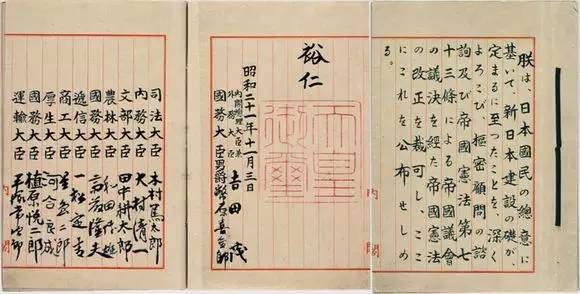 朕は、日本國民の總意に
基いて、新日本建設の礎が、
定まるに至つたことを、深く
よろこび、樞密顧問の諮
詢及び帝國憲法第七
十三條による帝國議會
の議決を經た帝國憲法
の改正を裁可し、ここ
にこれを公布せしめ
る。
内閣
裕仁
天皇御璽
昭和二十一年十一月三日
內閣總理大臣兼
外務大臣 吉田茂
國務大臣 男爵幣原喜重郎
司法大臣 木村篤太郎
內務大臣 大村清一
文部大臣 田中耕太郎
農林大臣 和田博雄
國務大臣 斎藤隆夫
遞信大臣 一松定吉
商工大臣 星島二郎
厚生大臣 河合良成
國務大臣 植原悦二郎
運輸大臣 平塚常次郎
内閣